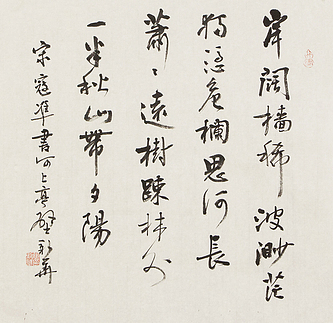 岸闊檣稀波渺茫
獨憑危欄思何長
蕭〻遠樹疎林外
一半秋山帶夕陽
宋寇準書河上亭壁